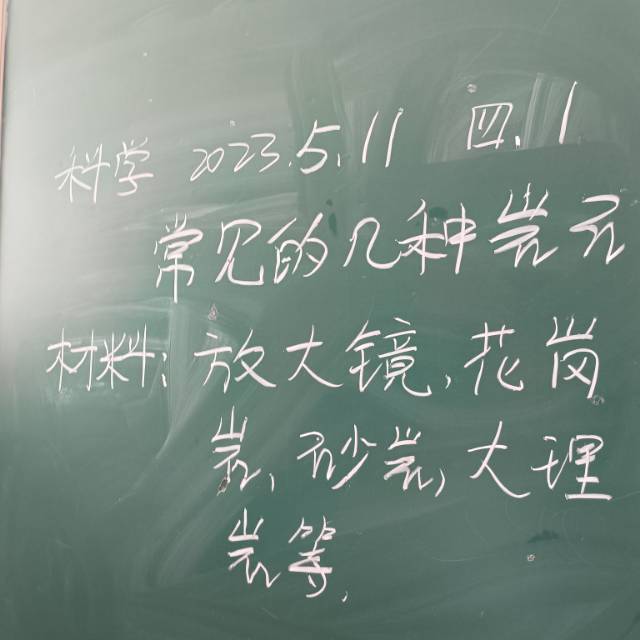 科学 2023.5.11 四.1
常见的几种岩石
材料:放大镜,花岗
岩,砂岩,大理
岩等.